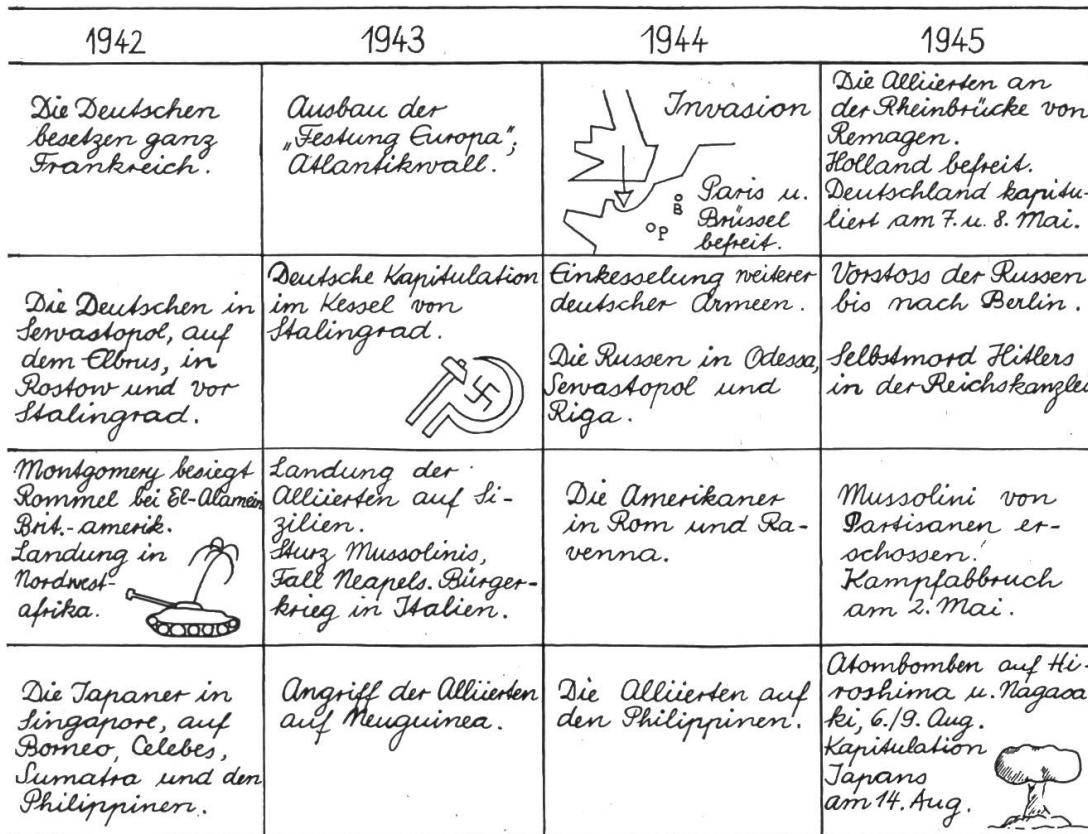 1942
1943
1944
1945
Die Deutschen
besetzen ganz
Frankreich.
Ausbau der
"Festung Europa";
Atlantikwall.
Invasion
Paris u.
Brüssel
befreit.
B
P
Die Alliierten an
der Rheinbrücke von
Remagen.
Holland befreit.
Deutschland kapitu-
liert am 7. u. 8. Mai.
Die Deutschen in
Sewastopol, auf
dem Elbrus, in
Rostow und vor
Stalingrad.
Deutsche Kapitulation
im Kessel von
Stalingrad.
Einkesselung weiterer
deutscher Armeen.
Die Russen in Odessa,
Sewastopol und
Riga.
Vorstoss der Russen
bis nach Berlin.
Selbstmord Hitlers
in der Reichskanzlei
Montgomery besiegt
Rommel bei El-Alamein
Brit.-amerik.
Landung in
Nordwest-
afrika.
Landung der
Alliierten auf Si-
zilien.
Sturz Mussolinis,
Fall Neapels. Bürger-
krieg in Italien.
Die Amerikaner
in Rom und Ra-
venna.
Mussolini von
Partisanen er-
schossen.
Kampfabbruch
am 2. Mai.
Die Japaner in
Singapore, auf
Borneo, Celebes,
Sumatra und den
Philippinen.
Angriff der Alliierten
auf Neuguinea.
Die Alliierten auf
den Philippinen.
Atombomben auf Hi-
roshima u. Nagasa
ki, 6./9. Aug.
Kapitulation
Japans
am 14. Aug.